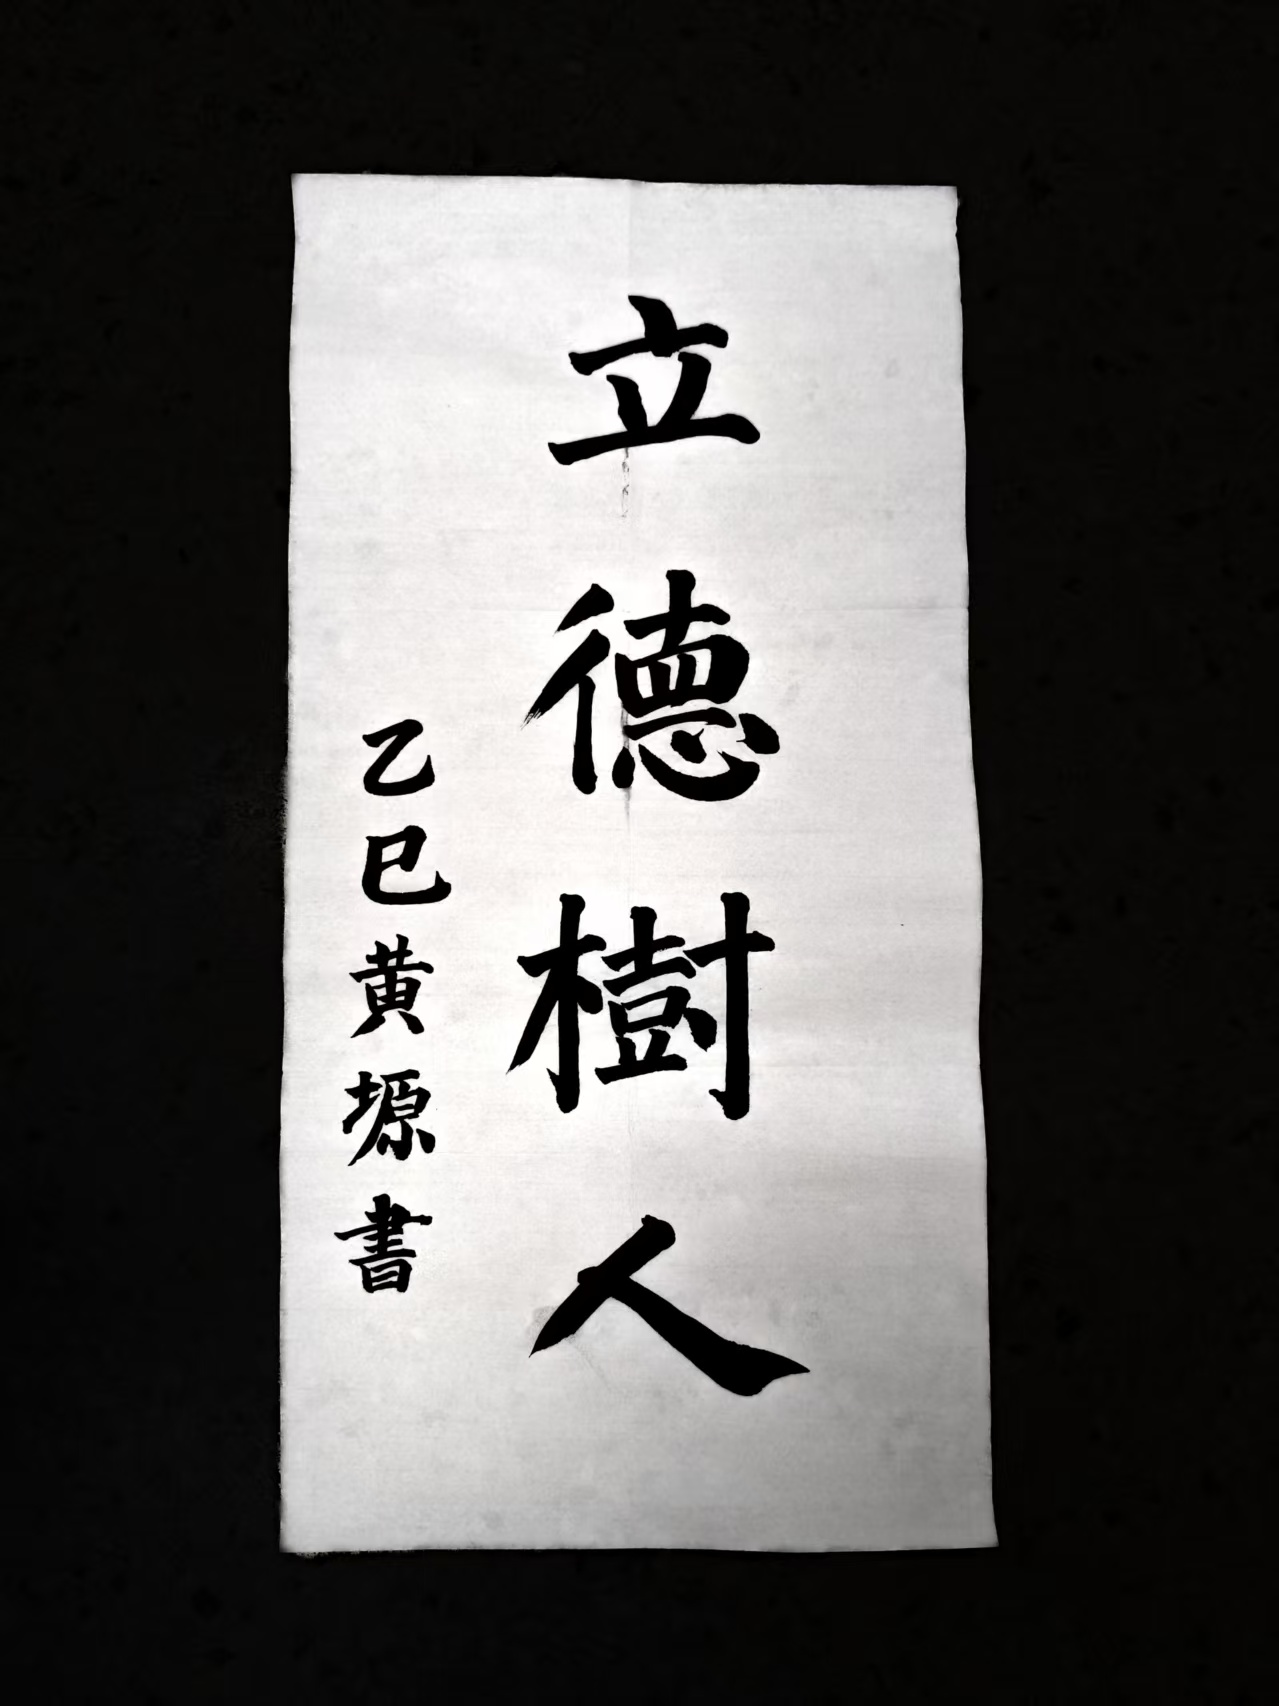 立德樹人
乙巳黄塬書